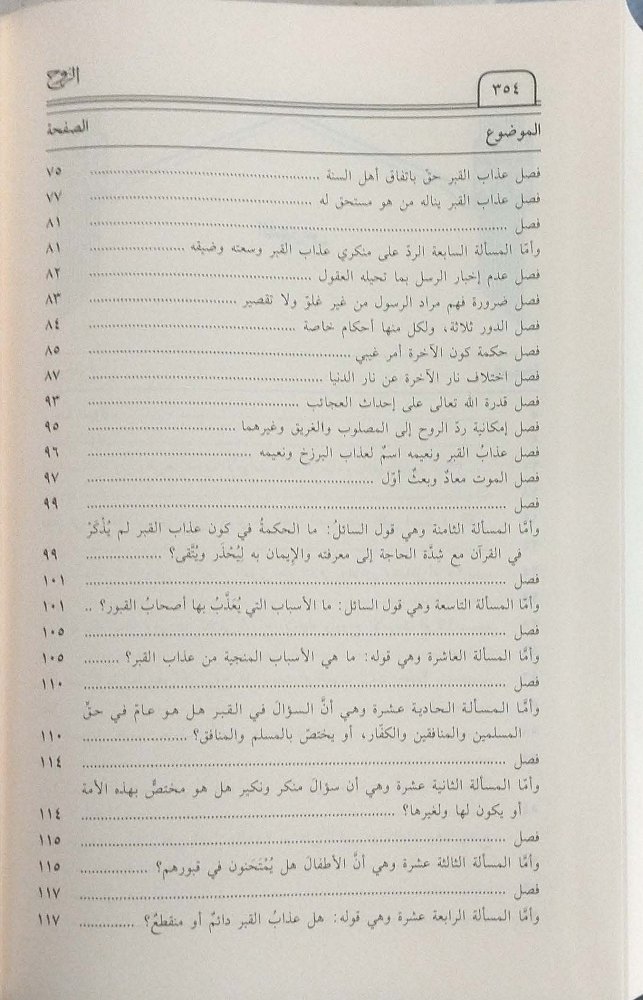 ٣٥٤
الروح
الموضوع الصفحة
فصل عذاب القبر حقّ باتفاق أهل السنة ........ ٧٥
فصل عذاب القبر يناله من هو مستحق له ........ ٧٧
فصل ........ ٨١
وأمّا المسألة السابعة الردّ على منكري عذاب القبر وسعته وضيقه ........ ٨١
فصل عدم إخبار الرسل بما تحيله العقول ........ ٨٢
فصل ضرورة فهم مراد الرسول من غير غلوّ ولا تقصير ........ ٨٣
فصل الدور ثلاثة، ولكل منها أحكام خاصة ........ ٨٤
فصل حكمة كون الآخرة أمر غيبي ........ ٨٥
فصل اختلاف نار الآخرة عن نار الدنيا ........ ٨٧
فصل قدرة الله تعالى على إحداث العجائب ........ ٩٣
فصل إمكانية ردّ الروح إلى المصلوب والغريق وغيرهما ........ ٩٥
فصل عذابُ القبر ونعيمه اسمٌ لعذاب البرزخ ونعيمه ........ ٩٦
فصل الموت معادٌ وبعثٌ أوّل ........ ٩٧
فصل ........ ٩٩
وأمَّا المسألة الثامنة وهي قول السائلُ: ما الحكمةُ في كون عذاب القبر لم يُذْكَرْ
في القرآن مع شِدَّة الحاجة إلى معرفته والإيمان به لِيُحْذَر ويُتَّقى؟ ........ ٩٩
فصل ........ ١٠١
وأمّا المسألة التاسعة وهي قول السائل: ما الأسباب التي يُعَذَّبُ بها أصحابُ القبور؟ .. ١٠١
فصل ........ ١٠٥
وأمَّا المسألة العاشرة وهي قوله: ما هي الأسباب المنجية من عذاب القبر؟ ........ ١٠٥
فصل ........ ١١٠
وأمَّا المسألة الحادية عشرة وهي أنَّ السؤالَ في القبر هل هو عامّ في حقِّ
المسلمين والمنافقين والكفّار، أو يختصّ بالمسلم والمنافق؟ ........ ١١٠
فصل ........ ١١٤
وأمّا المسألة الثانية عشرة وهي أن سؤالَ منكر ونكير هل هو مختصٌّ بهذه الأمة
أو يكون لها ولغيرها؟ ........ ١١٤
فصل ........ ١١٥
وأمّا المسألة الثالثة عشرة وهي أنَّ الأطفالَ هل يُمْتَحَنون في قبورهم؟ ........ ١١٥
فصل ........ ١١٧
وأمّا المسألة الرابعة عشرة وهي قوله: هل عذابُ القبر دائمٌ أو منقطعٌ؟ ........ ١١٧